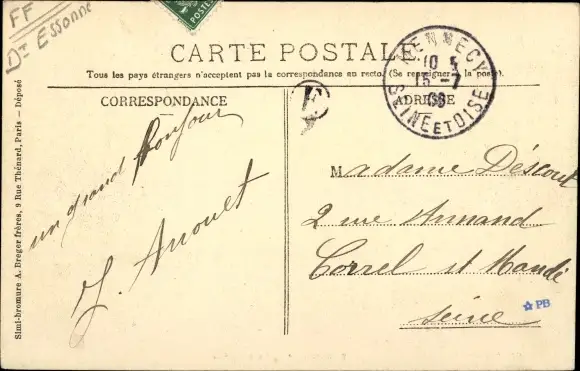 FF
Dt Essonne
POSTES
CARTE POSTALE
Tous les pays étrangers n'acceptent pas la correspondance au recto. (Se renseigner à la poste).
MENNECY
10
15 -7
SEINE ET OISE
CORRESPONDANCE
ADRESSE
E
un grand bonjour
J. Arrouet
Madame Déscout
2 rue Armand
Correl st Mandé
Seine
☆ PB
Simi-bromure A. Breger frères, 9 Rue Thénard, Paris — Déposé